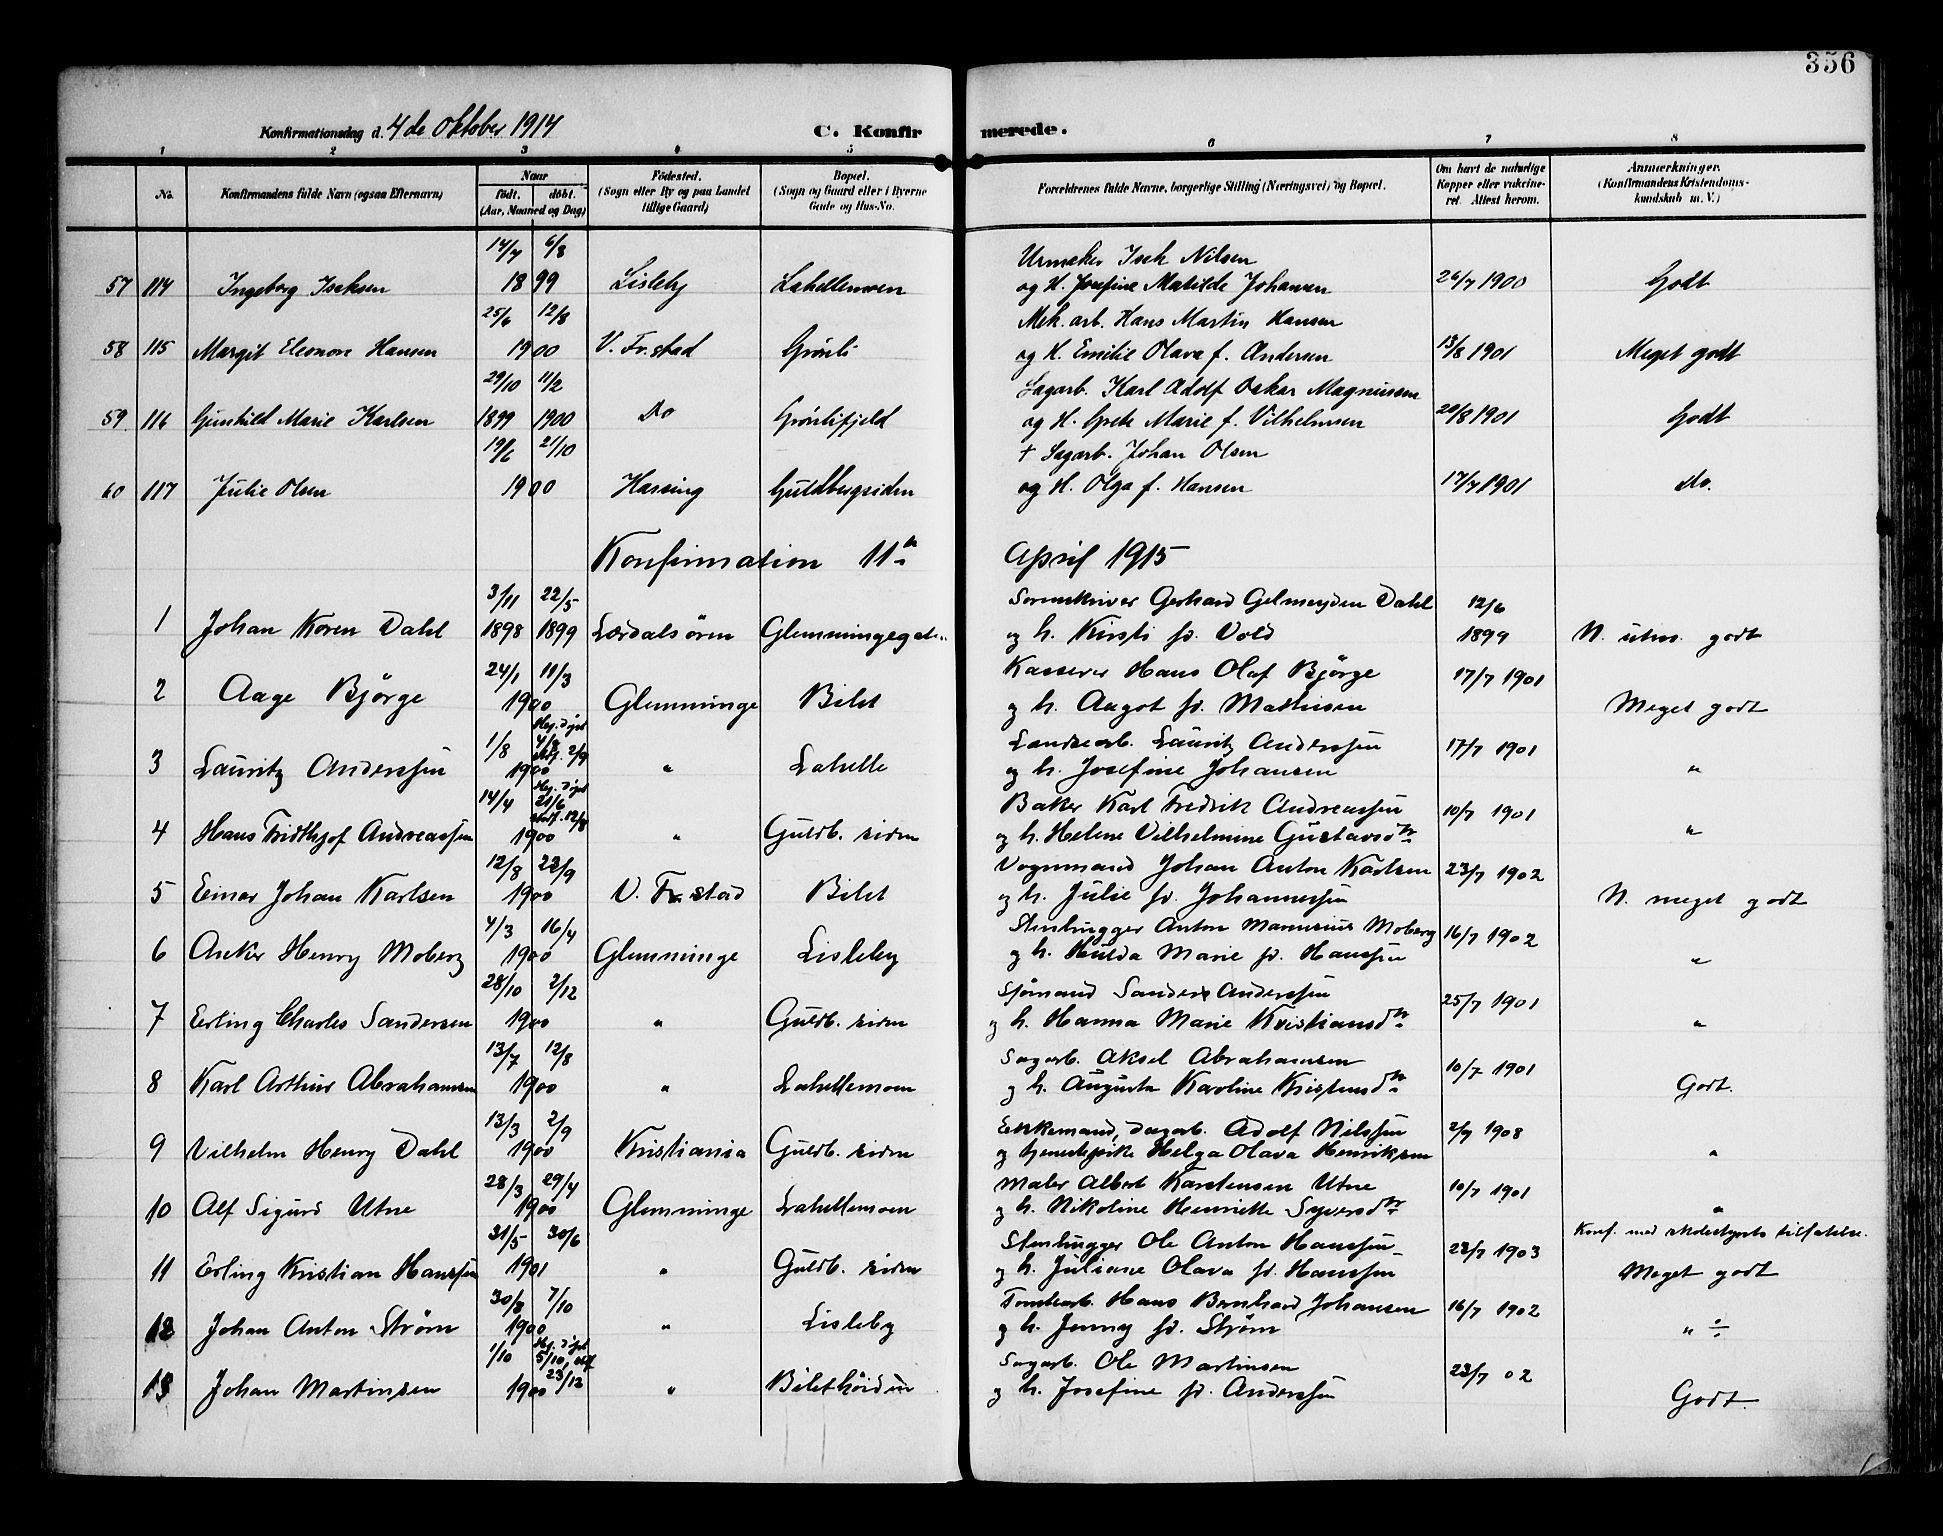 356
Konfirmationsdag d. 4 de Oktober 1914 C. Konfirmerede.
1 2 3 4 5 6 7 8
No. Konfirmandens fulde Navn (ogsaa Efternavn) Naar født. døbt. (Aar, Maaned og Dag) Fødested. (Sogn eller By og paa Landet tillige Gaard) Bopæl. (Sogn og Gaard eller i Byerne Gade og Hus-No. Forældrenes fulde Navne, borgerlige Stilling (Næringsvei) og Bopæl. Om havt de naturlige Kopper eller vakcineret. Attest herom. Anmærkninger. (Konfirmandens Kristendomskundskab m. V.)
14/7 6/8 Urmaker Isak Nilsen
57 114 Ingeborg Isaksen 1899 Lisleby Lahellemoen og H. Josefine Matilde Johansen 26/7 1900 Godt
25/6 12/8 Mek. arb. Hans Martin Hansen
58 115 Margit Eleonore Hansen 1900 V. Fr.stad Grönli og H. Emilie Olava f. Andersen 13/8 1901 Meget godt
29/10 11/2 Sagarb. Karl Adolf Oskar Magnussen
59 116 Gunhild Marie Karlsen 1899 1900 Do Grönlifjeld og H. Grete Marie f. Vilhelmsen 20/8 1901 Godt
19/6 21/10 + Sagarb. Johan Olsen
60 117 Julie Olsen 1900 Hassing Guldbergsiden og H. Olga f. Hansen 17/7 1901 Do.
Konfirmation 11te April 1915
3/11 22/5 Sorenskriver Gerhard Gelmeyden Dahl 12/6
1 Johan Koren Dahl 1898 1899 Lærdalsören Glemmingegat.. og h. Kirsti fd. Vold 1899 N. utm. godt
24/1 11/3 Kasserer Hans Olaf Björge 17/7 1901
2 Aage Björge 1900 Glemminge Bilet og h. Augot fd. Mathisen Meget godt
1/8 Hj. døpt 4/8 stadf. 2/9 Landsarb. Lauritz Anderssen 17/7 1901
3 Lauritz Anderssen 1900 " Lahelle og h. Josefine Johansen "
14/4 Hj. døpt 21/6 stadf. 12/8 Baker Karl Fredrik Andreassen 10/7 1901
4 Hans Fridthjof Andreassen 1900 " Guldb. siden og h. Helene Vilhelmine Gustavsdtr "
12/8 23/9 Vognmand Johan Anton Karlsen 23/7 1902
5 Einar Johan Karlsen 1900 V. Fr.stad Bilet og h. Julie fd. Johannessen N. meget godt
4/3 16/4 Stenhugger Anton Marensius Moberg 16/7 1902
6 Anker Henry Moberg 1900 Glemminge Lisleby og h. Hulda Marie fd. Hanssen "
28/10 2/12 Sjömand Sander Anderssen 25/7 1901
7 Erling Charles Sandersen 1900 " Guldb. siden og h. Hanna Marie Kristiansdtr "
13/7 12/8 Sagarb. Aksel Abrahamsen 10/7 1901
8 Karl Arthur Abrahamsen 1900 " Lahellemoen og h. Augusta Karoline Kristensdtr Godt.
13/3 2/9 Enkemand, Sagarb. Adolf Nilssen 2/9 1908
9 Vilhelm Henry Dahl 1900 Kristiania Guldb. siden og tjenestepike Helga Olava Henriksen "
28/3 29/4 Maler Albert Karstensen Utne 10/7 1901
10 Alf Sigurd Utne 1900 Glemminge Lahellemoen og h. Nikoline Henriette Syversdtr "
31/5 30/6 Stenhugger Ole Anton Hanssen 23/7 1903 Konf. med skolestyrets tilladelse.
11 Erling Kristian Hanssen 1901 " Guldb. siden og h. Juliane Olava fd. Hanssen Meget godt
30/8 7/10 Tomtearb. Hans Bernhard Johansen 16/7 1902
12 Johan Anton Strøm 1900 " Lisleby og h. Jenny fd. Strøm " ÷
1/10 Hj. døpt 5/10, stdf. 23/12 Sagarb. Ole Martinsen 23/7 02
13 Johan Martinsen 1900 " Bilethöiden og h. Josefine fd. Anderssen Godt.